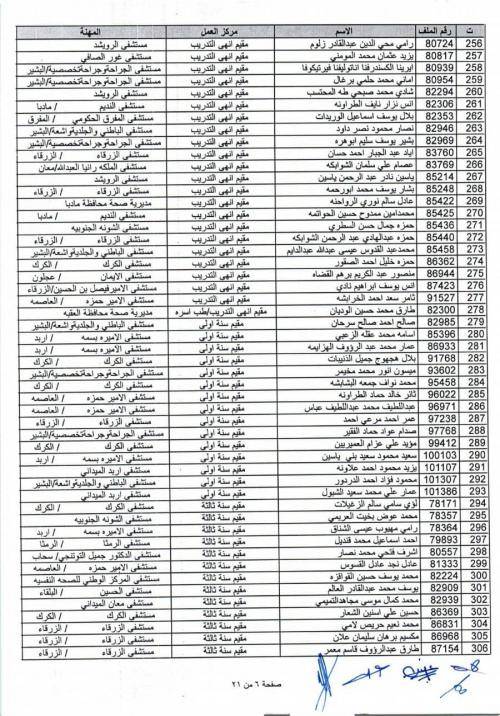 ت رقم الملف الاسم مركز العمل المهنة
256 80724 رامي محي الدين عبدالقادر زلوم مقيم انهى التدريب مستشفى الرويشد
257 80817 يزيد عثمان محمد المومني مقيم انهى التدريب مستشفى غور الصافي
258 80939 ايرينا الكسندرفنا اناتوليفنا فيرتيكوفا مقيم انهى التدريب مستشفى الجراحة وجراحة تخصصية/البشير
259 80954 اماني محمد حلمي برغال مقيم انهى التدريب مستشفى الجراحة وجراحة تخصصية/البشير
260 82294 شادي محمد صبحي طه المحتسب مقيم انهى التدريب مستشفى الرويشد
261 82306 انس نزار نايف الطراونه مقيم انهى التدريب مستشفى النديم / مادبا
262 82353 بلال يوسف اسماعيل الوريدات مقيم انهى التدريب مستشفى المفرق الحكومي / المفرق
263 82946 نصار محمود نصر داود مقيم انهى التدريب مستشفى الباطني والجلدية واشعة/البشير
264 82969 بشير يوسف سليم ابوهره مقيم انهى التدريب مستشفى الجراحة وجراحة تخصصية/البشير
265 83760 اياد عبد الجبار احمد حسان مقيم انهى التدريب مستشفى الزرقاء / الزرقاء
266 83769 عصام علي سلمان الشوابكه مقيم انهى التدريب مستشفى الملكه رانيا العبدالله/معان
267 85214 ياسين نادر عبد الرحمن ياسين مقيم انهى التدريب مستشفى الرويشد
268 85248 بشار يوسف محمد ابورحمه مقيم انهى التدريب مستشفى الزرقاء / الزرقاء
269 85422 عادل سالم نوري الرواحنه مقيم انهى التدريب مديرية صحة محافظة مادبا
270 85425 محمدامين ممدوح حسين الحواتمه مقيم انهى التدريب مستشفى النديم / مادبا
271 85436 حمزه جمال حسن السطري مقيم انهى التدريب مستشفى الشونه الجنوبيه
272 85440 حمزه عبدالهادي عبد الرحمن الشوابكه مقيم انهى التدريب مستشفى الزرقاء / الزرقاء
273 85458 محمدعبد القدوس عيسى عبدالله عبدالدايم مقيم انهى التدريب مستشفى الباطني والجلدية واشعة/البشير
274 86362 حمزه خليل احمد الصقور مقيم انهى التدريب مستشفى الكرك / الكرك
275 86944 منصور عبد الكريم برهم القضاه مقيم انهى التدريب مستشفى الايمان / عجلون
276 87423 انس يوسف ابراهيم نادي مقيم انهى التدريب مستشفى الامير فيصل بن الحسين/الزرقاء
277 91527 ثامر سعد احمد الخرابشه مقيم انهى التدريب مستشفى الامير حمزه / العاصمه
278 82300 طارق محمد حسين الوديان مقيم انهى التدريب/طب اسره مديرية صحة محافظة العقبه
279 82985 صالح احمد صالح سرحان مقيم سنة اولى مستشفى الباطني والجلدية واشعة/البشير
280 83396 اسامه محمد عقله الزعبي مقيم سنة اولى مستشفى الاميره بسمه / اربد
281 86933 عمار محمد عبد الرؤوف الهزايمه مقيم سنة اولى مستشفى الاميره بسمه / اربد
282 91768 بلال هجهوج جميل الذنيبات مقيم سنة اولى مستشفى الكرك / الكرك
283 93602 ميسون انور محمد مخيمر مقيم سنة اولى مستشفى الجراحة وجراحة تخصصية/البشير
284 95458 محمد نواف جمعه البشابشه مقيم سنة اولى مستشفى الكرك / الكرك
285 96022 ثائر خالد حماد الطراونه مقيم سنة اولى مستشفى الكرك / الكرك
286 96971 عبداللطيف محمد عبداللطيف عباس مقيم سنة اولى مستشفى الامير حمزه / العاصمه
287 97238 عمر احمد مرعي احمد مقيم سنة اولى مستشفى الامير حمزه / العاصمه
288 97768 صدام عواد حماد الفقير مقيم سنة اولى مستشفى الجراحة وجراحة تخصصية/البشير
289 99412 مؤيد علي عزام العميريين مقيم سنة اولى مستشفى الكرك / الكرك
290 100103 سعيد محمود سعيد بني ياسين مقيم سنة اولى مستشفى الاميره بسمه / اربد
291 101107 يزيد محمود احمد علاونه مقيم سنة اولى مستشفى اربد الميداني
292 101307 محمود فؤاد احمد الدردور مقيم سنة اولى مستشفى الباطني والجلدية واشعة/البشير
293 101386 عمار علي محمد سعيد الشبول مقيم سنة اولى مستشفى اربد الميداني
294 78171 لؤي سامي سالم الزغيلات مقيم سنة ثالثة مستشفى الكرك / الكرك
295 78357 محمد عوض بخيت العريمي مقيم سنة ثالثة مستشفى الشونه الجنوبيه
296 78364 رامي مهيوب عيسى الشناق مقيم سنة ثالثة مستشفى الاميره بسمه / اربد
297 79893 احمد اسماعيل محمد قنديل مقيم سنة ثالثة مستشفى الرمثا / الرمثا
298 80557 اشرف فتحي محمد نصار مقيم سنة ثالثة مستشفى الدكتور جميل التوتنجي/ سحاب
299 81333 عادل نجد عادل القسوس مقيم سنة ثالثة مستشفى الامير حمزه / العاصمه
300 82224 محمد يوسف حسين الفواقزه مقيم سنة ثالثة مستشفى المركز الوطني للصحه النفسيه
301 82909 محمد يوسف عبدالقادر العالم مقيم سنة ثالثة مستشفى الحسين / البلقاء
302 82939 محمد كمال موسى مجاهدالتميمي مقيم سنة ثالثة مستشفى معان الميداني
303 86369 حسين علي اسنين الشعار مقيم سنة ثالثة مستشفى الكرك / الكرك
304 86831 محمد نعيم حريص لامي مقيم سنة ثالثة مستشفى الزرقاء / الزرقاء
305 86968 مكسيم برهان سليمان علان مقيم سنة ثالثة مستشفى الزرقاء / الزرقاء
306 87154 طارق عبدالرؤوف قاسم معمر مقيم سنة ثالثة مستشفى الزرقاء / الزرقاء
صفحة ٦ من ٢١